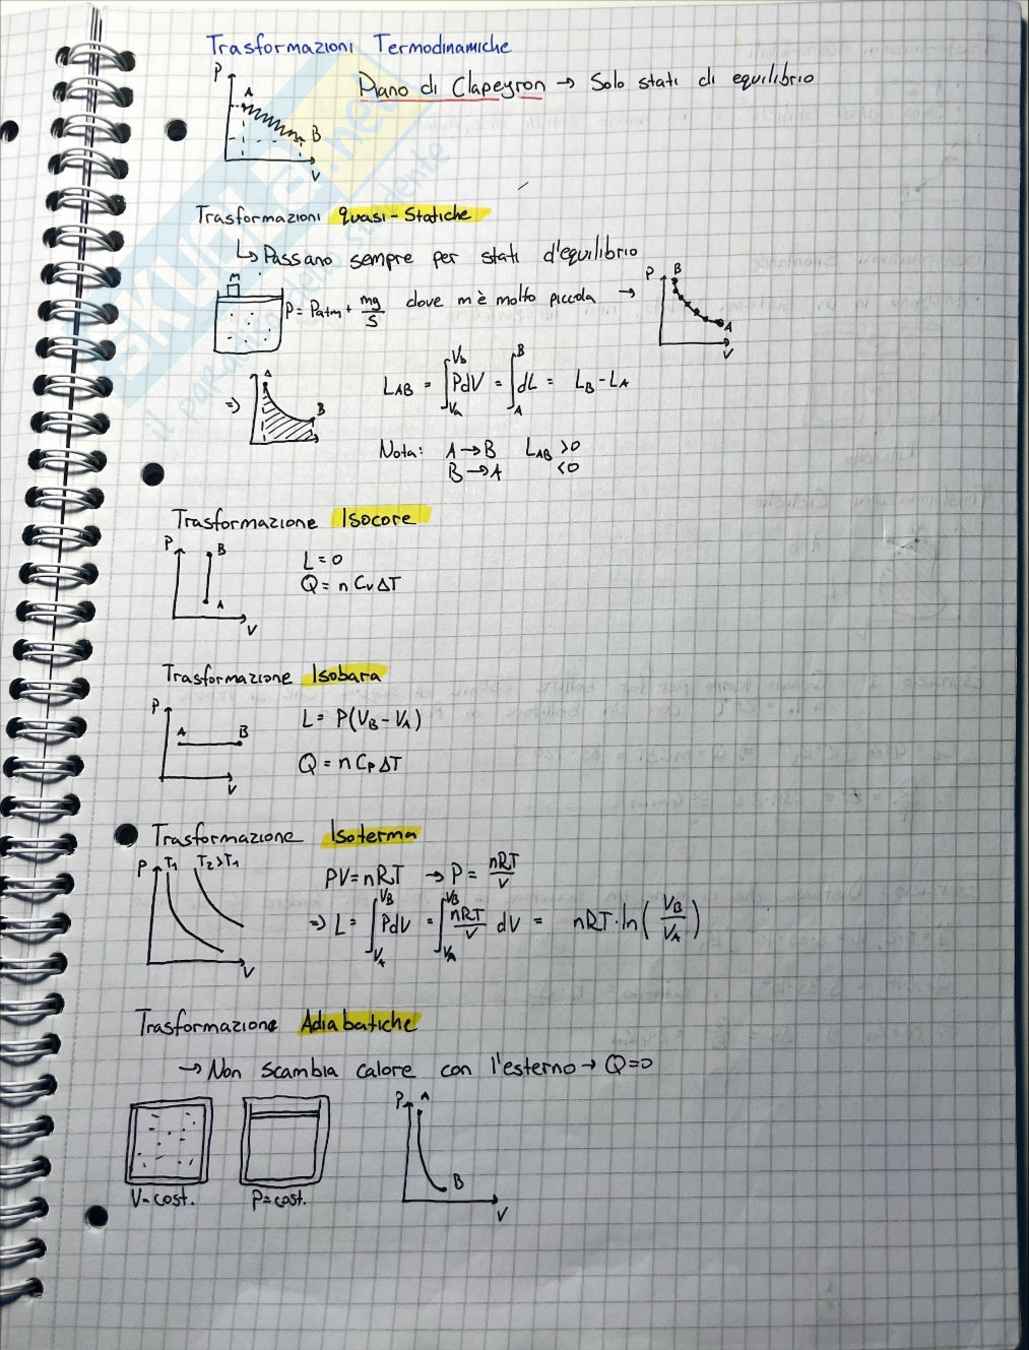 Trasformazioni Termodinamiche
P
A
B
V
Piano di Clapeyron → Solo stati di equilibrio
Trasformazioni quasi-Statiche
↳ Passano sempre per stati d'equilibrio
m
P = Patm + mg/S dove m è molto piccola →
P
B
A
V
⇒
A
B
L_AB = ∫_{Va}^{Vb} PdV = ∫_A^B dL = L_B - L_A
Nota: A → B L_AB > 0
B → A < 0
Trasformazione Isocore
P
B
A
V
L = 0
Q = n Cv ΔT
Trasformazione Isobara
P
A
B
V
L = P(V_B - V_A)
Q = n Cp ΔT
Trasformazione Isoterma
P
T1
T2 > T1
V
PV = nRT → P = nRT/V
⇒ L = ∫_{VA}^{VB} PdV = ∫_{VA}^{VB} nRT/V dV = nRT · ln(V_B/V_A)
Trasformazione Adiabatiche
→ Non scambia calore con l'esterno → Q = 0
V = cost.
P = cost.
P
A
B
V
skuola.net
il paradiso dello studente